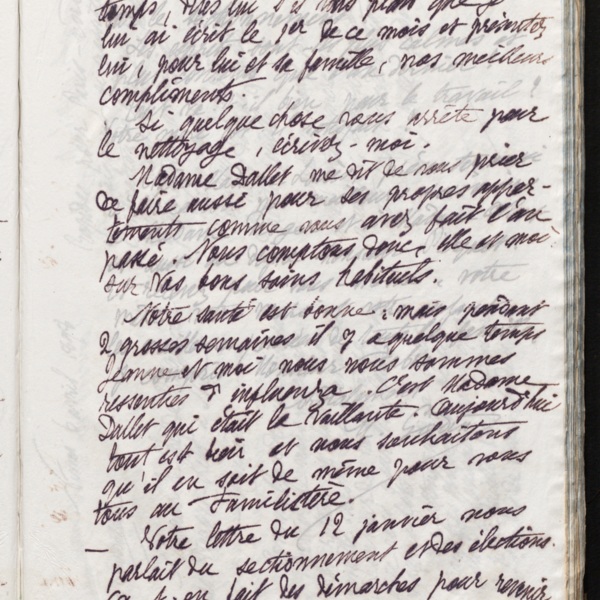 temps, dites lui s'il vous plait que je
lui ai écrit le 1er de ce mois et présentez
lui, pour lui et sa famille, nos meilleurs
compliments.
Si quelque chose vous arrête pour
le nettoyage, écrivez-moi.
Madame Dallet me dit de vous prier
de faire aussi pour ses propres appar-
tements comme vous avez fait l'an
passé. Nous comptons donc, elle et moi
sur vos bons soins habituels.
Notre santé est bonne ; mais pendant
2 grosses semaines il y a quelque temps
Jeanne et moi nous nous sommes
ressenties d'influenza. C'est Madame
Dallet qui était la vaillante. Aujourd'hui
tout est loin et nous souhaitons
qu'il en soit de même pour vous
tous au Familistère.
— Votre lettre du 12 janvier nous
parlait du sectionnement et des élections.
on fait des démarches pour revenir